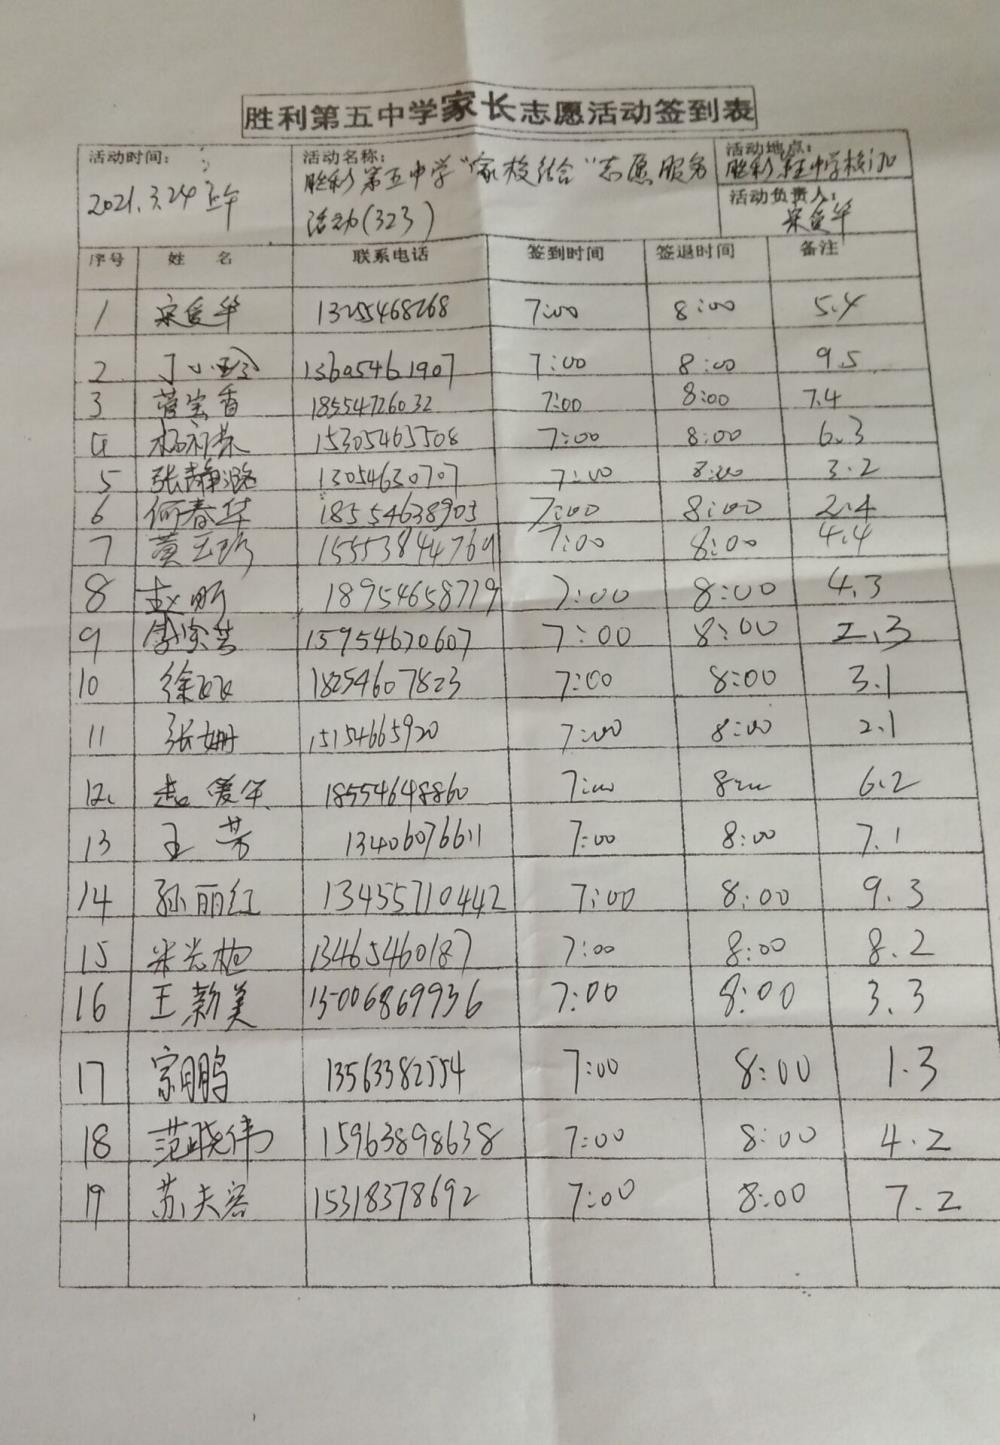 胜利第五中学家长志愿活动签到表
活动时间: 活动名称: 活动地点:
2021.3.24上午 胜利第五中学“家校结合”志愿服务 胜利第五中学校门口
活动(323) 活动负责人:
宋爱华
序号 姓 名 联系电话 签到时间 签退时间 备注
1 宋爱华 13255468268 7:00 8:00 5.4
2 丁小玲 13605461907 7:00 8:00 9.5
3 宝香 18554726032 7:00 8:00 7.4
4 杨 15305465508 7:00 8:00 6.3
5 张静 13054630707 7:00 8:00 3.2
6 何春华 18554638903 7:00 8:00 2.4
7 黄玉珍 15553844769 7:00 8:00 4.4
8 赵明 18954658779 7:00 8:00 4.3
9 15954670607 7:00 8:00 2.3
10 徐 18254607823 7:00 8:00 3.1
11 张姗 15154665920 7:00 8:00 2.1
12. 爱华 18554648860 7:00 8:00 6.2
13 王芳 13406076611 7:00 8:00 7.1
14 孙丽红 13455710442 7:00 8:00 9.3
15 米光 13465460187 7:00 8:00 8.2
16 王新美 15006869936 7:00 8:00 3.3
17 宗鹏 13563382554 7:00 8:00 1.3
18 范晓伟 15963898638 7:00 8:00 4.2
19 苏夫容 15318378692 7:00 8:00 7.2